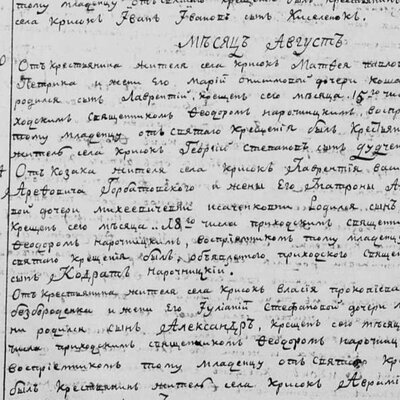 тому младенцу отъ святаго крещенія былъ крестьянинъ
села крисокъ Іванъ Івановъ сынъ Киселенокъ.
Мѣсяцъ Августъ.
Отъ крестьянина жителя села крисокъ Матвея павлов
Петрика и жены его Маріи
родился сынъ Лаврентій крещенъ сего мѣсяца 15го чис
ходскимъ священникомъ Феодоромъ нарочицкимъ, воспр
тому младенцу отъ святаго крещенія былъ крестьян
житель села крисокъ Георгій Степановъ сынъ
Отъ Козака жителя села крисокъ Лаврентія васи
Арефовича Горбатовского и жены Его Матроны
вой дочери михеевичевны исаченковы родился сынъ
крещенъ сего мѣсяца 18го числа приходскимъ священни
Феодоромъ нарочицкимъ, воспріемникомъ тому младенцу
святаго крещенія былъ приходского священ
сынъ Кодратъ нарочицкій.
Отъ крестьянина жителя села крисокъ власія прокопіева
безбороденка и жены Его Іуліаніи Стефановой дочери
ни родился сынъ Александръ, крещенъ сего мѣсяца
числа приходскимъ священникомъ Феодоромъ нарочиц
воспріемникомъ тому младенцу отъ святаго кре
былъ крестьянинъ житель села крисокъ Авраміи